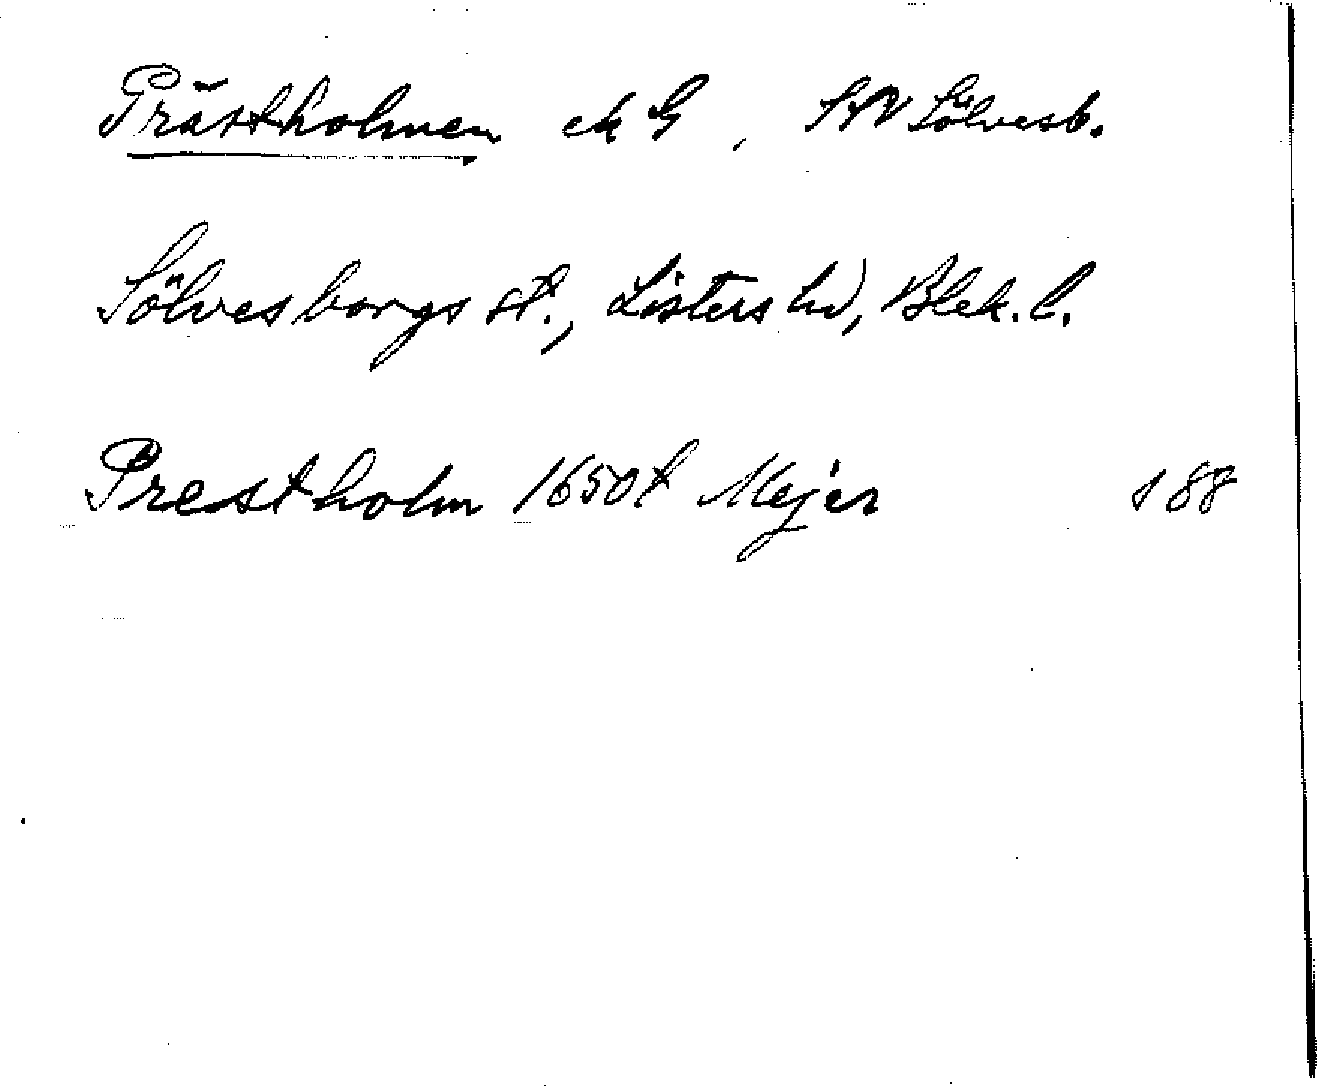 Prästholmen ek G, SV Sölvesb.
Sölvesborgs st., Listers hd, Blek. l.
Prestholm 1650t Mejer s 88